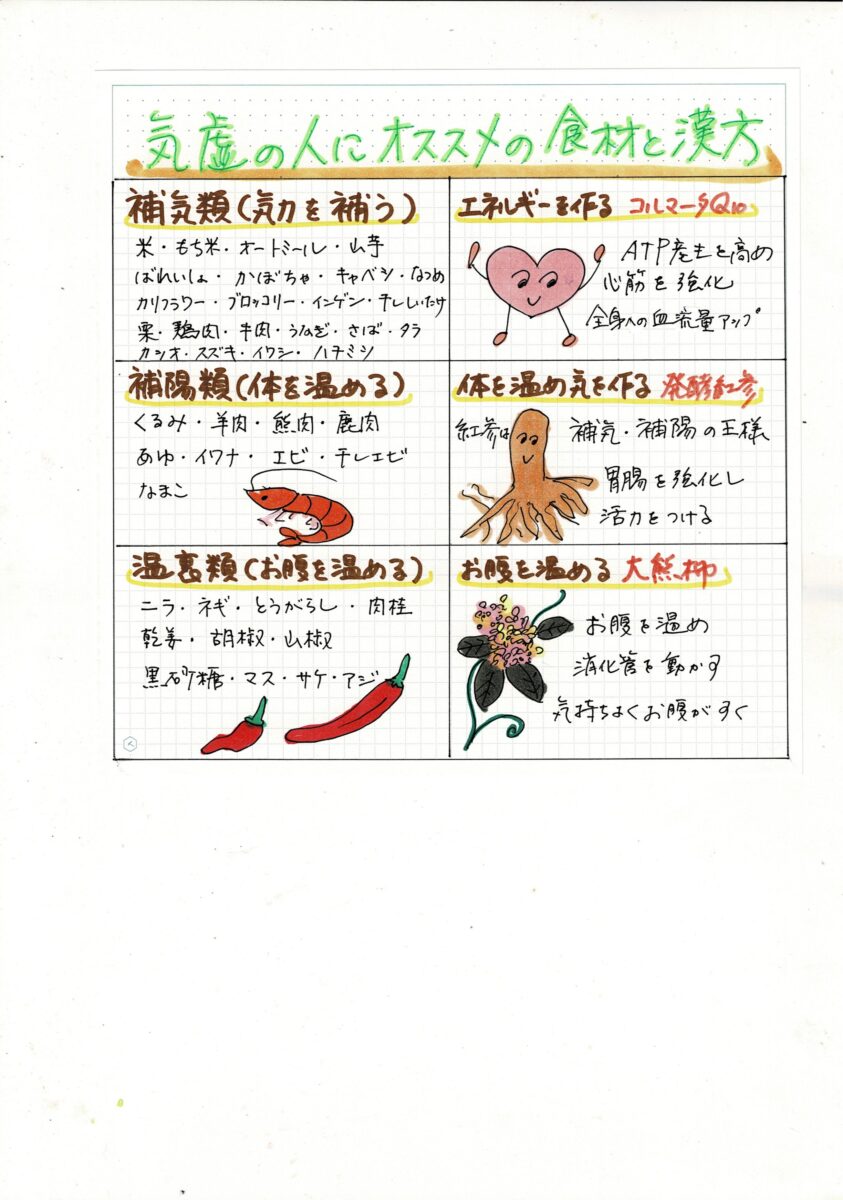 気虚の人にオススメの食材と漢方
補気類(気力を補う)
米・もち米・オートミール・山芋
ばれいしょ・かぼちゃ・キャベツ・なつめ
カリフラワー・ブロッコリー・インゲン・干しいたけ
栗・鶏肉・牛肉・うなぎ・さば・タラ
カツオ・スズキ・イワシ・ハチミツ
エネルギーを作る コルマータQ10
ATP産生を高め
心筋を強化
全身への血流量アップ
補陽類(体を温める)
くるみ・羊肉・熊肉・鹿肉
あゆ・イワナ・エビ・干しエビ
なまこ
体を温め気を作る 発酵紅参
紅参は 補気・補陽の王様
胃腸を強化し
活力をつける
温裏類(お腹を温める)
ニラ・ネギ・とうがらし・肉桂
乾姜・胡椒・山椒
黒砂糖・マス・サケ・アジ
お腹を温める 大熊柳
お腹を温め
消化管を動かす
気持ちよくお腹がすく